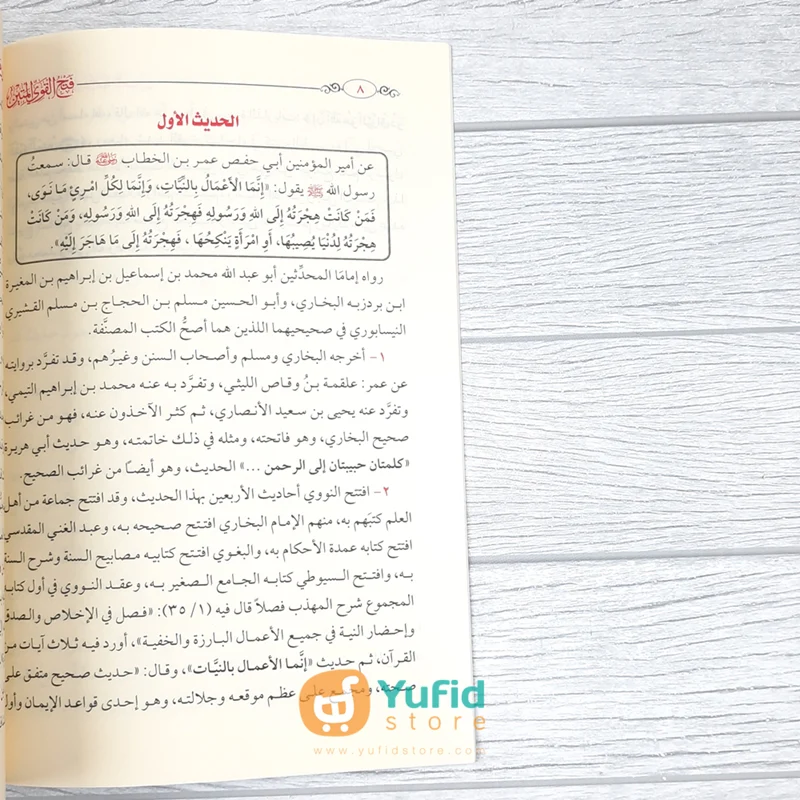 فتح القوي المتين
٨
الحديث الأول
عن أمير المؤمنين أبي حفص عمر بن الخطاب رضي الله عنه قال: سمعتُ
رسول الله ﷺ يقول: «إِنَّمَا الأَعْمَالُ بِالنِّيَّاتِ، وَإِنَّمَا لِكُلِّ امْرِئٍ مَا نَوَى،
فَمَنْ كَانَتْ هِجْرَتُهُ إِلَى اللهِ وَرَسُولِهِ فَهِجْرَتُهُ إِلَى اللهِ وَرَسُولِهِ، وَمَنْ كَانَتْ
هِجْرَتُهُ لِدُنْيَا يُصِيبُهَا، أَوِ امْرَأَةٍ يَنْكِحُهَا، فَهِجْرَتُهُ إِلَى مَا هَاجَرَ إِلَيْهِ».
رواه إمامَا المحدِّثين أبو عبد الله محمد بن إسماعيل بن إبراهيم بن المغيرة
ابن بردزبه البخاري، وأبو الحسين مسلم بن الحجاج بن مسلم القشيري
النيسابوري في صحيحيهما اللذين هما أصحُّ الكتب المصنَّفة.
١- أخرجه البخاري ومسلم وأصحاب السنن وغيرُهم، وقد تفرَّد بروايته
عن عمر: علقمة بنُ وقاص الليثي، وتفرَّد به عنه محمد بن إبراهيم التيمي،
وتفرَّد عنه يحيى بن سعيد الأنصاري، ثم كثر الآخذون عنه، فهو من غرائب
صحيح البخاري، وهو فاتحته، ومثله في ذلك خاتمته، وهو حديث أبي هريرة
«كلمتان حبيبتان إلى الرحمن ...» الحديث، وهو أيضاً من غرائب الصحيح.
٢- افتتح النووي أحاديث الأربعين بهذا الحديث، وقد افتتح جماعة من أهل
العلم كتبَهم به، منهم الإمام البخاري افتتح صحيحه به، وعبد الغني المقدسي
افتتح كتابه عمدة الأحكام به، والبغوي افتتح كتابيه مصابيح السنة وشرح السنة
به، وافتتح السيوطي كتابه الجامع الصغير به، وعقد النووي في أول كتابه
المجموع شرح المهذب فصلاً قال فيه (١/ ٣٥): «فصل في الإخلاص والصدق
وإحضار النية في جميع الأعمال البارزة والخفية»، أورد فيه ثلاث آيات من
القرآن، ثم حديث «إنَّما الأعمال بالنيَّات»، وقال: «حديث صحيح متفق على
صحته، ومجمع على عظم موقعه وجلالته، وهو إحدى قواعد الإيمان وأول
Yufid
store
www.yufidstore.com